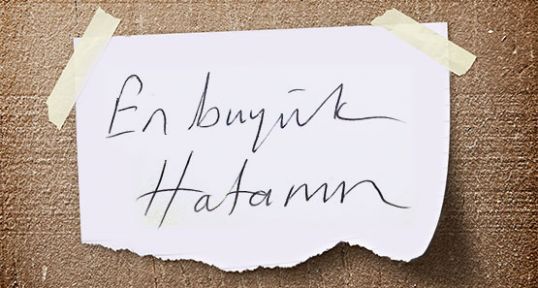 En buyük
Hatamın